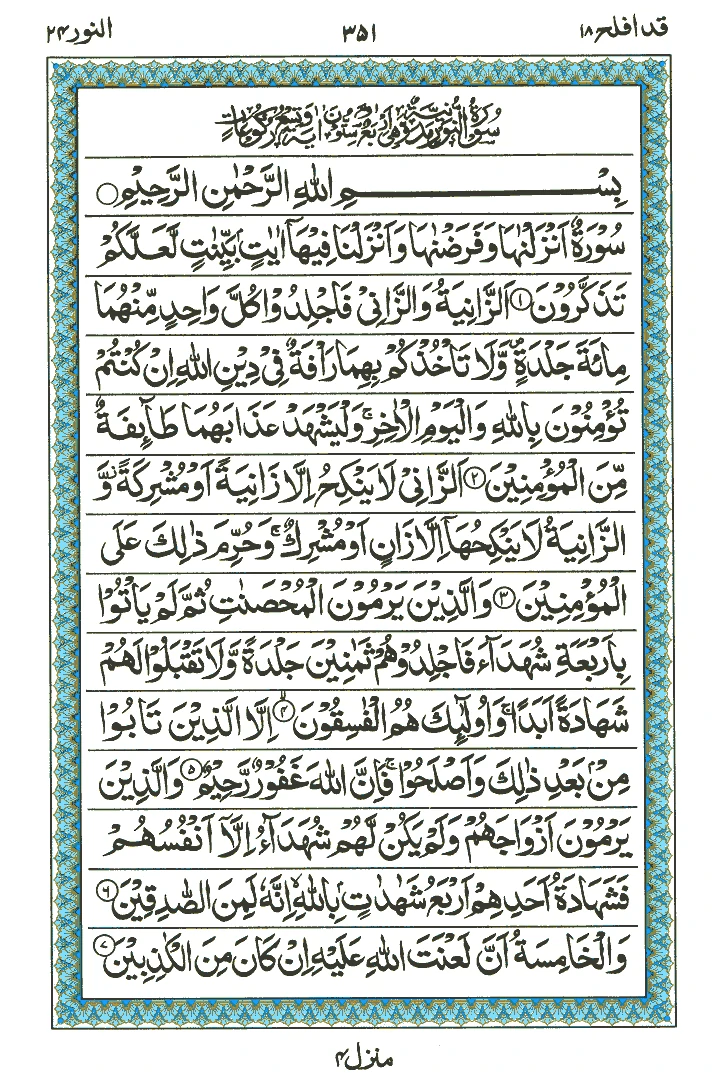 قد افلح ۱۸
۳۵۱
النور ۲۴
سُوْرَةُ النُّوْرِ مَدَنِيَّةٌ وَّهِيَ اَرْبَعٌ وَّسِتُّوْنَ اٰيَةً وَّتِسْعُ رُكُوْعَاتٍ
بِسْــــــمِ اللّٰهِ الرَّحْمٰنِ الرَّحِيْمِ ۝
سُوْرَةٌ اَنْزَلْنٰهَا وَفَرَضْنٰهَا وَاَنْزَلْنَا فِيْهَاۤ اٰيٰتٍۭ بَيِّنٰتٍ لَّعَلَّكُمْ
تَذَكَّرُوْنَ ۝۱ اَلزَّانِيَةُ وَالزَّانِيْ فَاجْلِدُوْا كُلَّ وَاحِدٍ مِّنْهُمَا
مِائَةَ جَلْدَةٍ ۪ وَّلَا تَاْخُذْكُمْ بِهِمَا رَاْفَةٌ فِيْ دِيْنِ اللّٰهِ اِنْ كُنْتُمْ
تُؤْمِنُوْنَ بِاللّٰهِ وَالْيَوْمِ الْاٰخِرِ ۚ وَلْيَشْهَدْ عَذَابَهُمَا طَآىِٕفَةٌ
مِّنَ الْمُؤْمِنِيْنَ ۝۲ اَلزَّانِيْ لَا يَنْكِحُ اِلَّا زَانِيَةً اَوْ مُشْرِكَةً ؗ وَّ
الزَّانِيَةُ لَا يَنْكِحُهَاۤ اِلَّا زَانٍ اَوْ مُشْرِكٌ ۚ وَحُرِّمَ ذٰلِكَ عَلَى
الْمُؤْمِنِيْنَ ۝۳ وَالَّذِيْنَ يَرْمُوْنَ الْمُحْصَنٰتِ ثُمَّ لَمْ يَاْتُوْا
بِاَرْبَعَةِ شُهَدَآءَ فَاجْلِدُوْهُمْ ثَمٰنِيْنَ جَلْدَةً وَّلَا تَقْبَلُوْا لَهُمْ
شَهَادَةً اَبَدًا ۚ وَاُولٰٓىِٕكَ هُمُ الْفٰسِقُوْنَ ۝۴ اِلَّا الَّذِيْنَ تَابُوْا
مِنْۢ بَعْدِ ذٰلِكَ وَاَصْلَحُوْا ۚ فَاِنَّ اللّٰهَ غَفُوْرٌ رَّحِيْمٌ ۝۵ وَالَّذِيْنَ
يَرْمُوْنَ اَزْوَاجَهُمْ وَلَمْ يَكُنْ لَّهُمْ شُهَدَآءُ اِلَّاۤ اَنْفُسُهُمْ
فَشَهَادَةُ اَحَدِهِمْ اَرْبَعُ شَهٰدٰتٍۭ بِاللّٰهِ ۙ اِنَّهٗ لَمِنَ الصّٰدِقِيْنَ ۝۶
وَالْخَامِسَةُ اَنَّ لَعْنَتَ اللّٰهِ عَلَيْهِ اِنْ كَانَ مِنَ الْكٰذِبِيْنَ ۝۷
منزل ۴